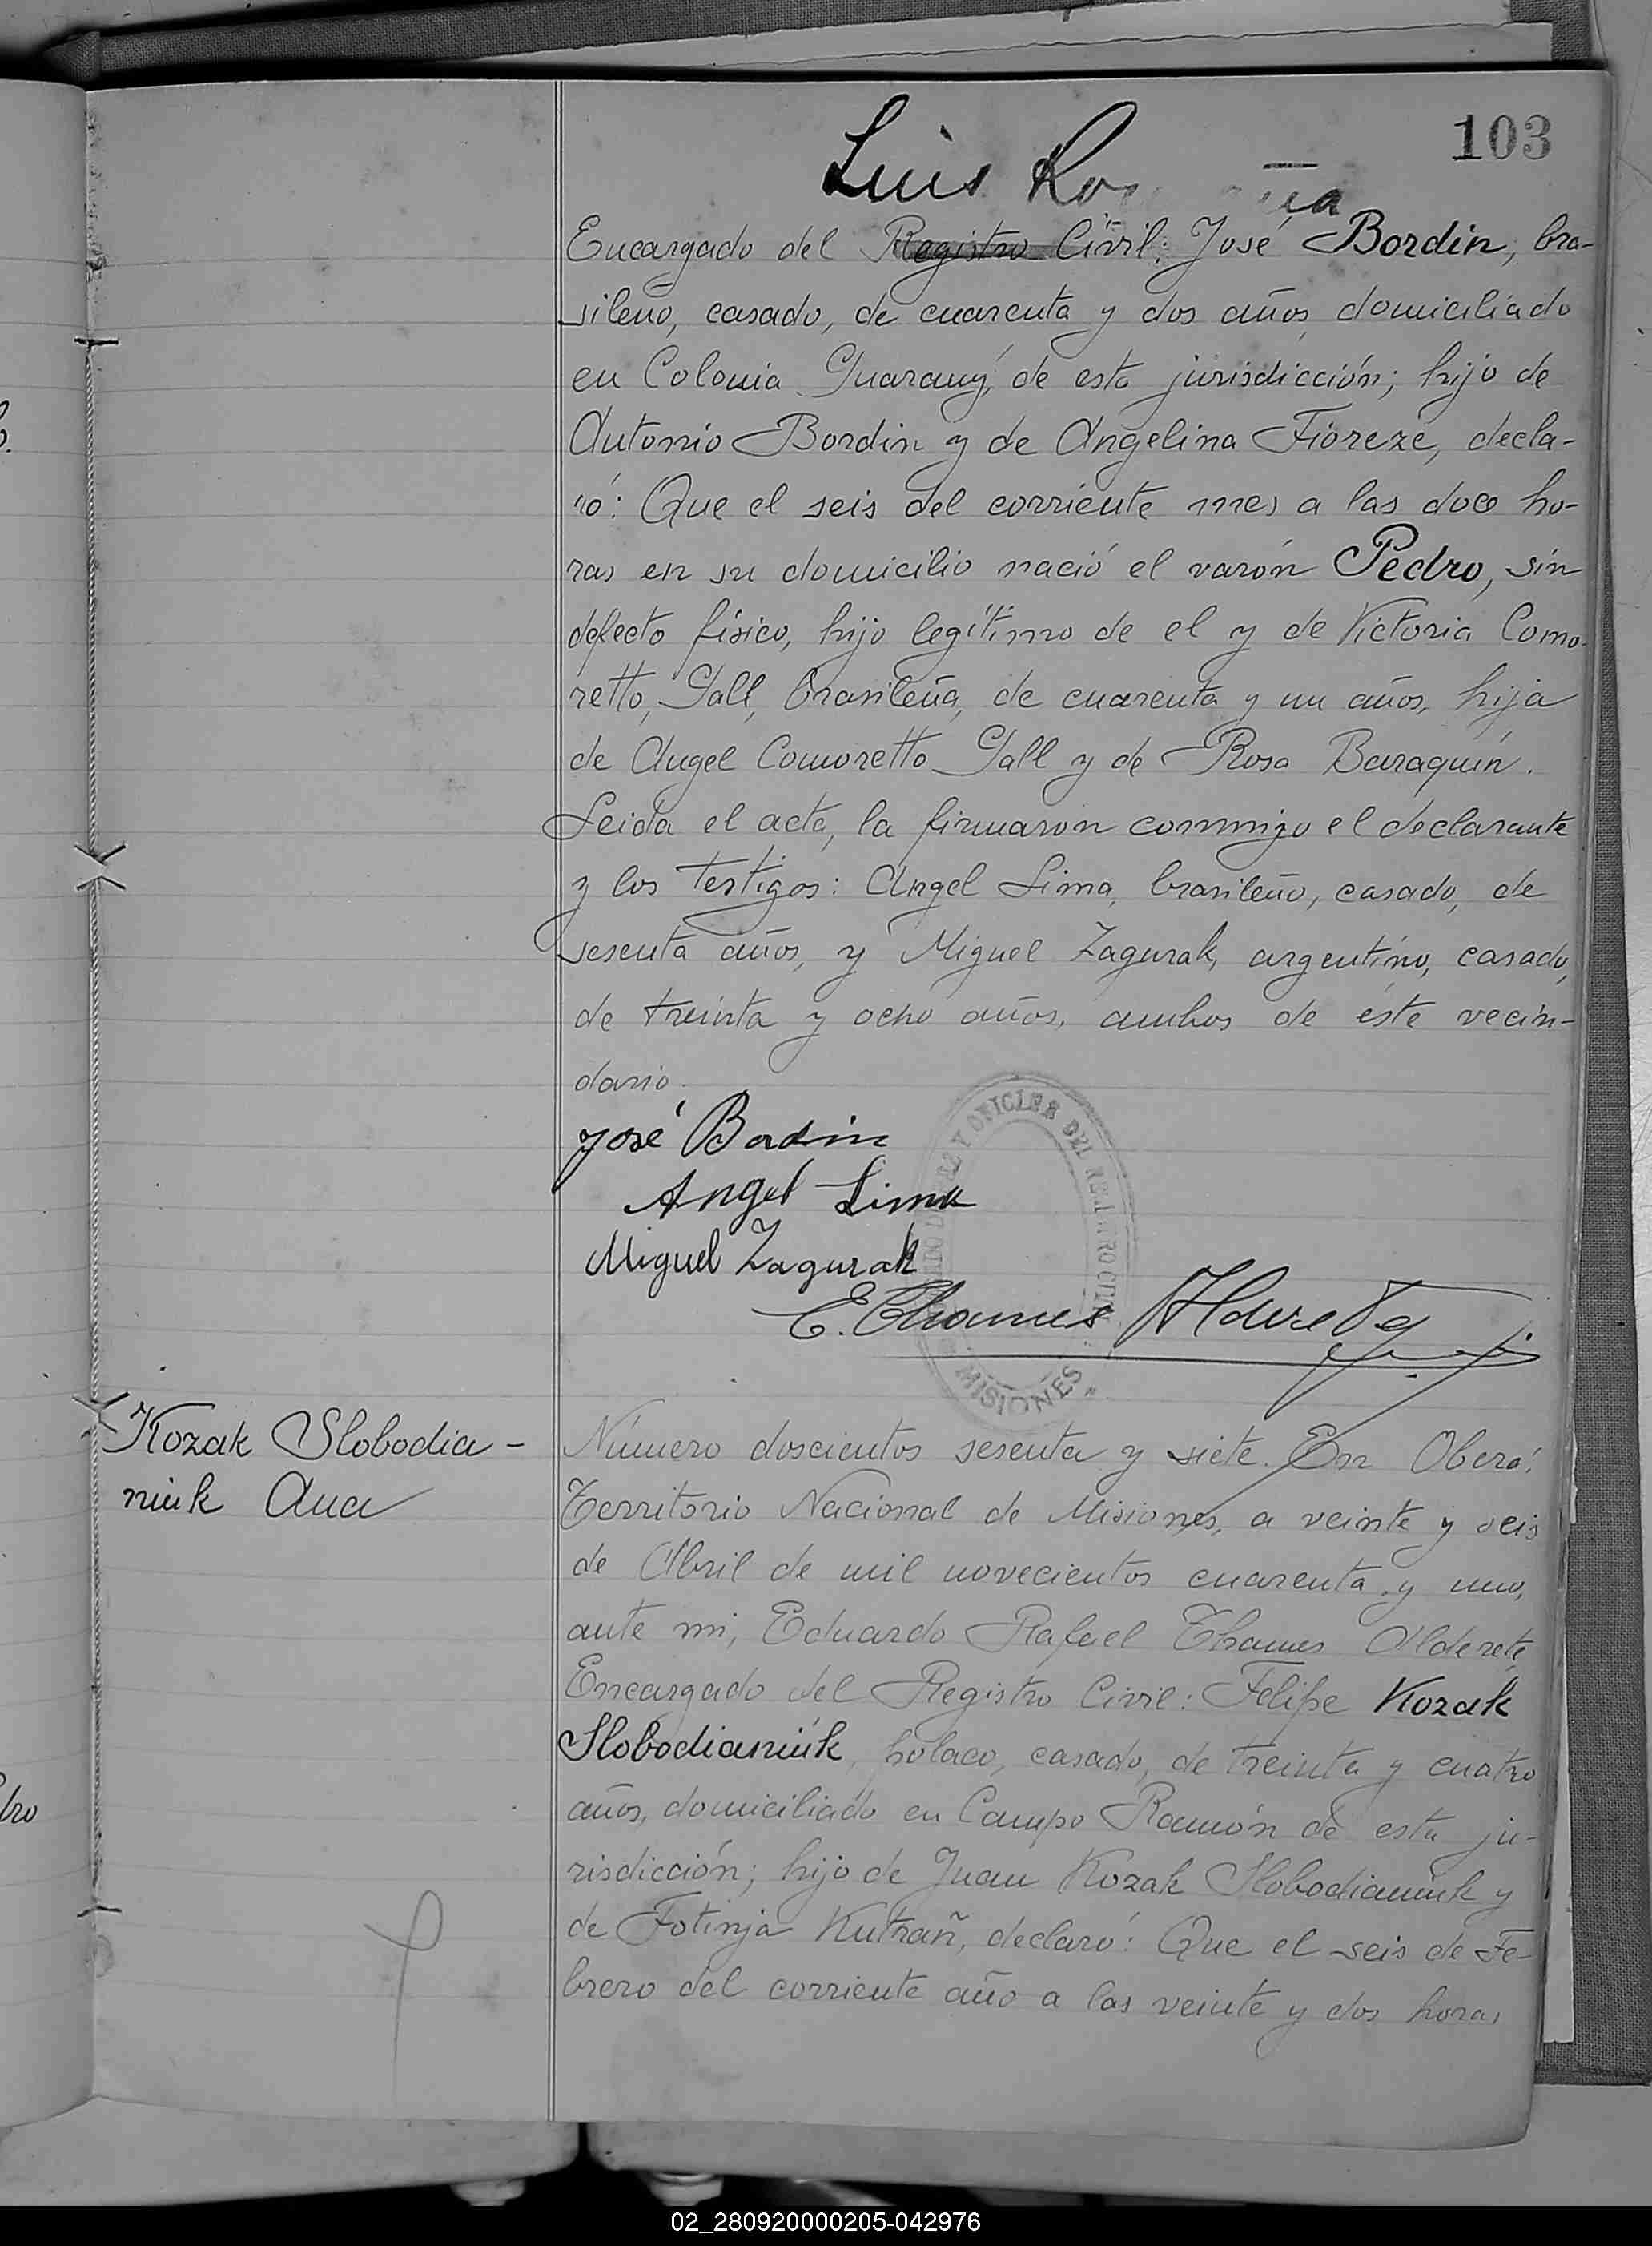 103
Luis
Encargado del Registro Civil: José Bordin, bra-
sileño, casado, de cuarenta y dos años, domiciliado
en Colonia Guarany, de esta jurisdicción; hijo de
Antonio Bordin y de Angelina Fioreze, decla-
ró: Que el seis del corriente mes a las doce ho-
ras en su domicilio nació el varón Pedro, sin
defecto físico, hijo legítimo de el y de Victoria Como-
retto, Gall, brasileña, de cuarenta y un años, hija
de Angel Comoretto Gall y de Rosa Baraquin.
Leida el acta, la firmaron conmigo el declarante
y los testigos: Angel Lima, brasileño, casado, de
sesenta años, y Miguel Zagurak, argentino, casado,
de treinta y ocho años, ambos de éste vecin-
dario.
José Bordin
Angel Lima
Miguel Zagurak
E. Thames Alderete
MISIONES
Kozak Slobodia-
niuk Ana
Número doscientos sesenta y siete. En Oberá,
Territorio Nacional de Misiones, a veinte y seis
de Abril de mil novecientos cuarenta y uno,
ante mi, Eduardo Rafael Thames Alderete,
Encargado del Registro Civil: Felipe Kozak
Slobodianiuk, polaco, casado, de treinta y cuatro
años, domiciliado en Campo Ramón de esta ju-
risdicción; hijo de Juan Kozak Slobodianiuk y
de Fotinja Kutrañ, declaró: Que el seis de Fe-
brero del corriente año a las veinte y dos horas
02_280920000205-042976